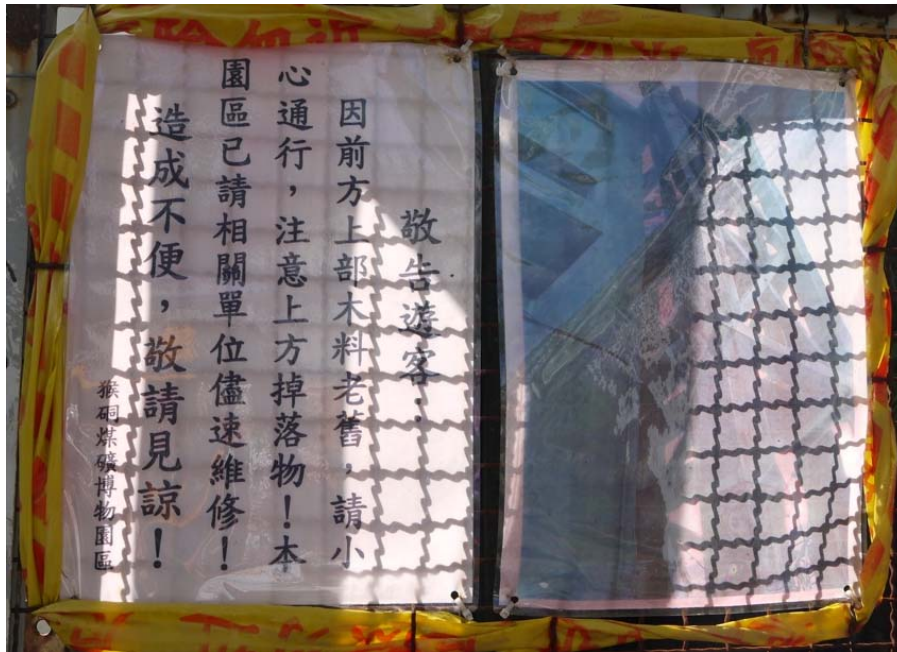 敬告遊客：
因前方上部木料老舊，請小
心通行，注意上方掉落物！本
園區已請相關單位儘速維修！
造成不便，敬請見諒！
猴硐煤礦博物園區